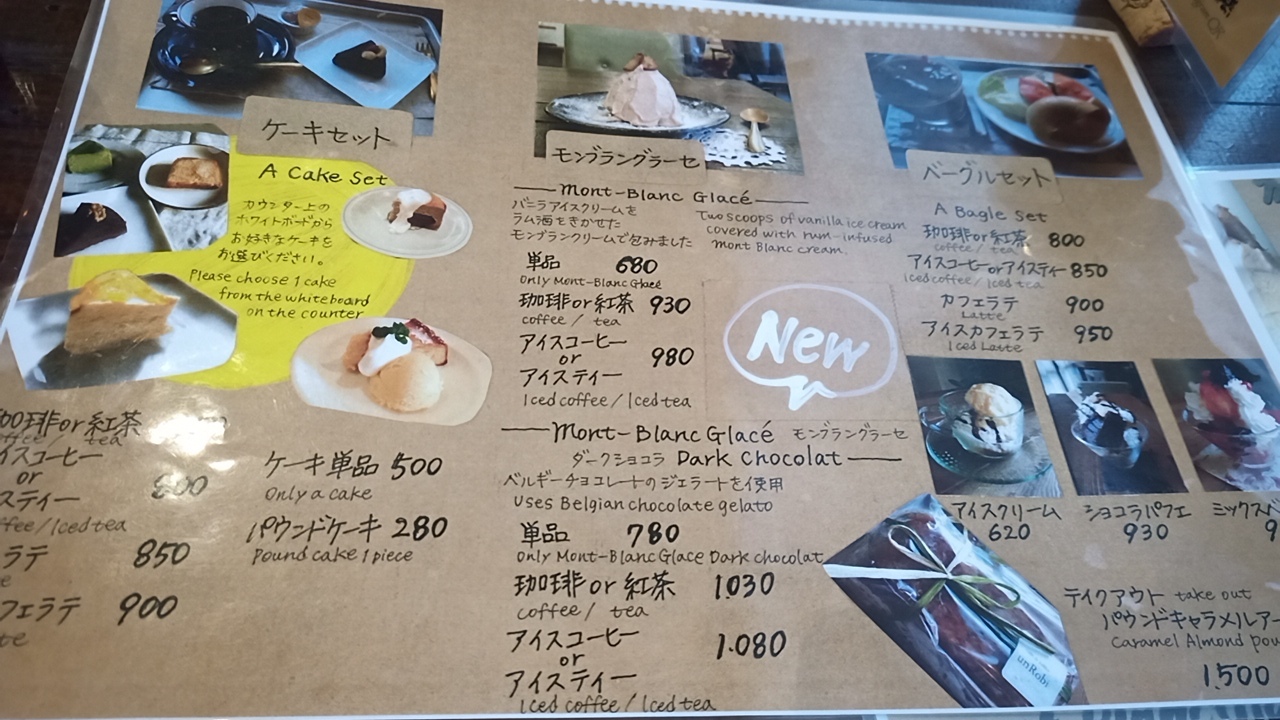 ケーキセット
A Cake Set
カウンター上の
ホワイトボードから
お好きなケーキを
お選びください。
Please choose 1 cake
from the whiteboard
on the counter
珈琲or紅茶
coffee / tea
イスコーヒー
or
スティー
ffee/Iced tea
ラテ 850
フェラテ 900
ケーキ単品 500
Only a cake
パウンドケーキ 280
Pound cake 1 piece
モンブラングラーセ
Mont-Blanc Glacé
バニラアイスクリームを
ラム酒をきかせた
モンブランクリームで包みました
Two scoops of vanilla ice cream
covered with rum-infused
mont Blanc cream.
単品 680
Only Mont-Blanc Glacé
珈琲or紅茶 930
coffee / tea
アイスコーヒー
or 980
アイスティー
Iced coffee / Iced tea
New
Mont-Blanc Glacé モンブラングラーセ
ダークショコラ Dark Chocolat
ベルギーチョコレートのジェラートを使用
Uses Belgian chocolate gelato
単品 780
Only Mont-Blanc Glacé Dark chocolat
珈琲or紅茶 1030
coffee / tea
アイスコーヒー
or 1.080
アイスティー
Iced coffee / Iced tea
バーグルセット
A Bagle Set
珈琲or紅茶 800
coffee / tea
アイスコーヒーorアイスティー 850
Iced coffee / Iced tea
カフェラテ 900
Latte
アイスカフェラテ 950
Iced Latte
アイスクリーム
620
ショコラパフェ
930
ミックスベ
9
unRobi
テイクアウト take out
パウンドキャラメルアー
Caramel Almond pou
1,500